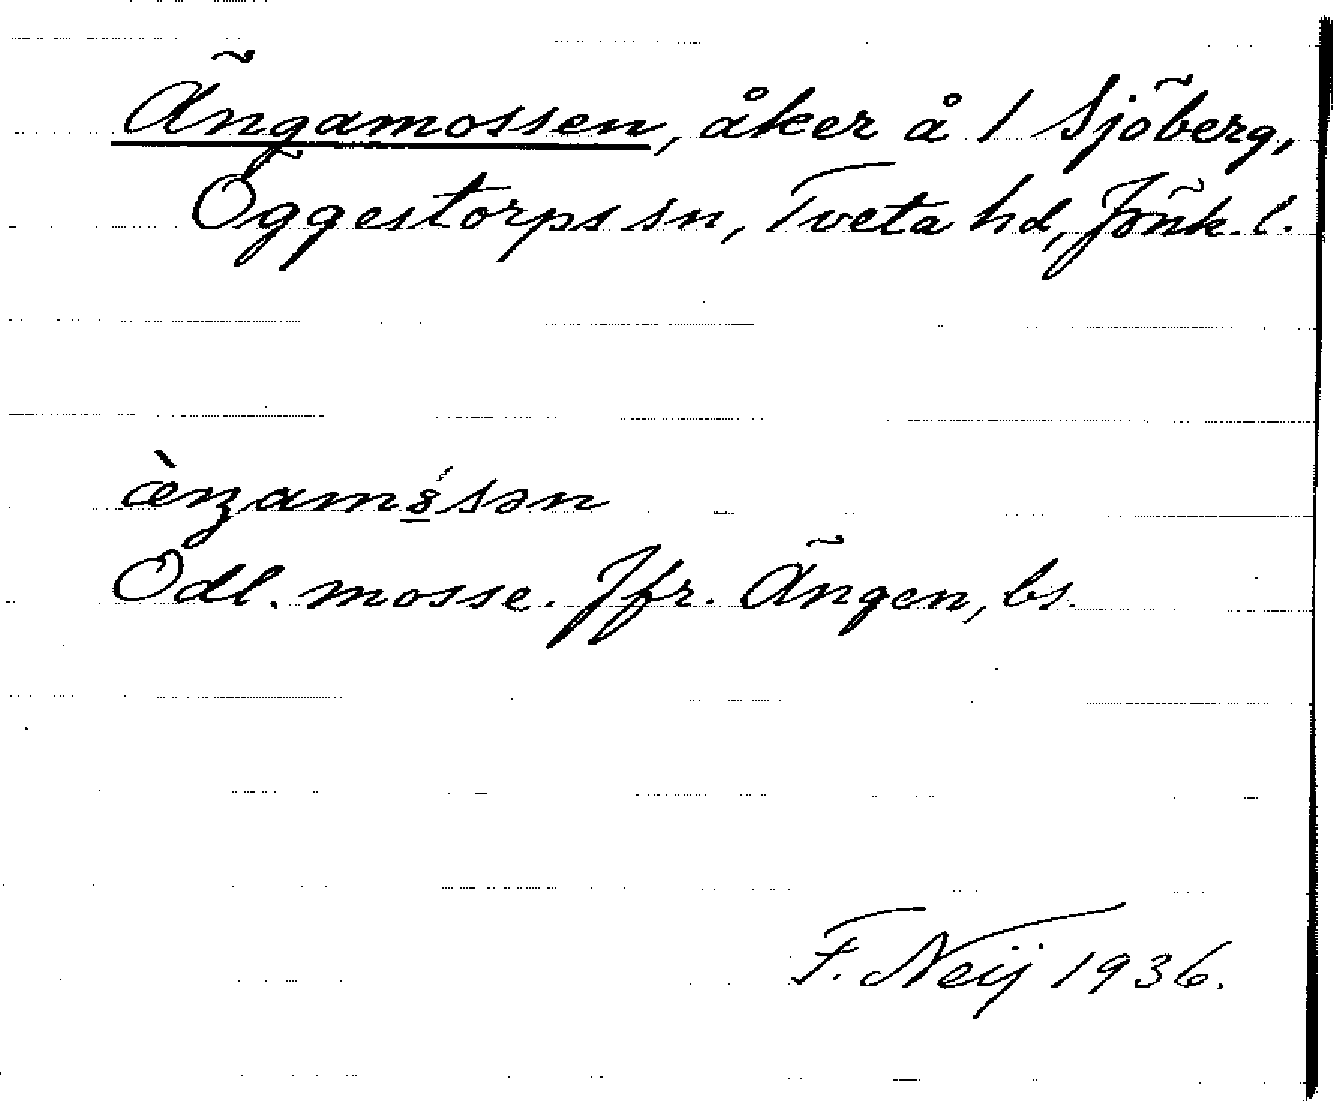 Ängamossen, åker å 1 Sjöberg,
Öggestorps sn, Tveta hd, Jönk. l.
Odl. mosse. Jfr. Ängen, bs.
F. Neij 1936.